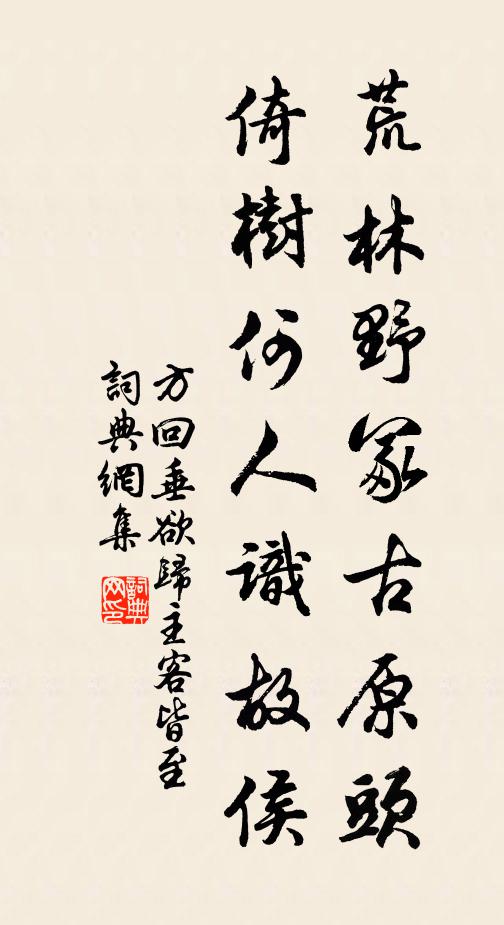 荒林野冢古原頭
倚樹何人識故侯
方回垂欲歸主客皆至
詞典網集
詞典網印